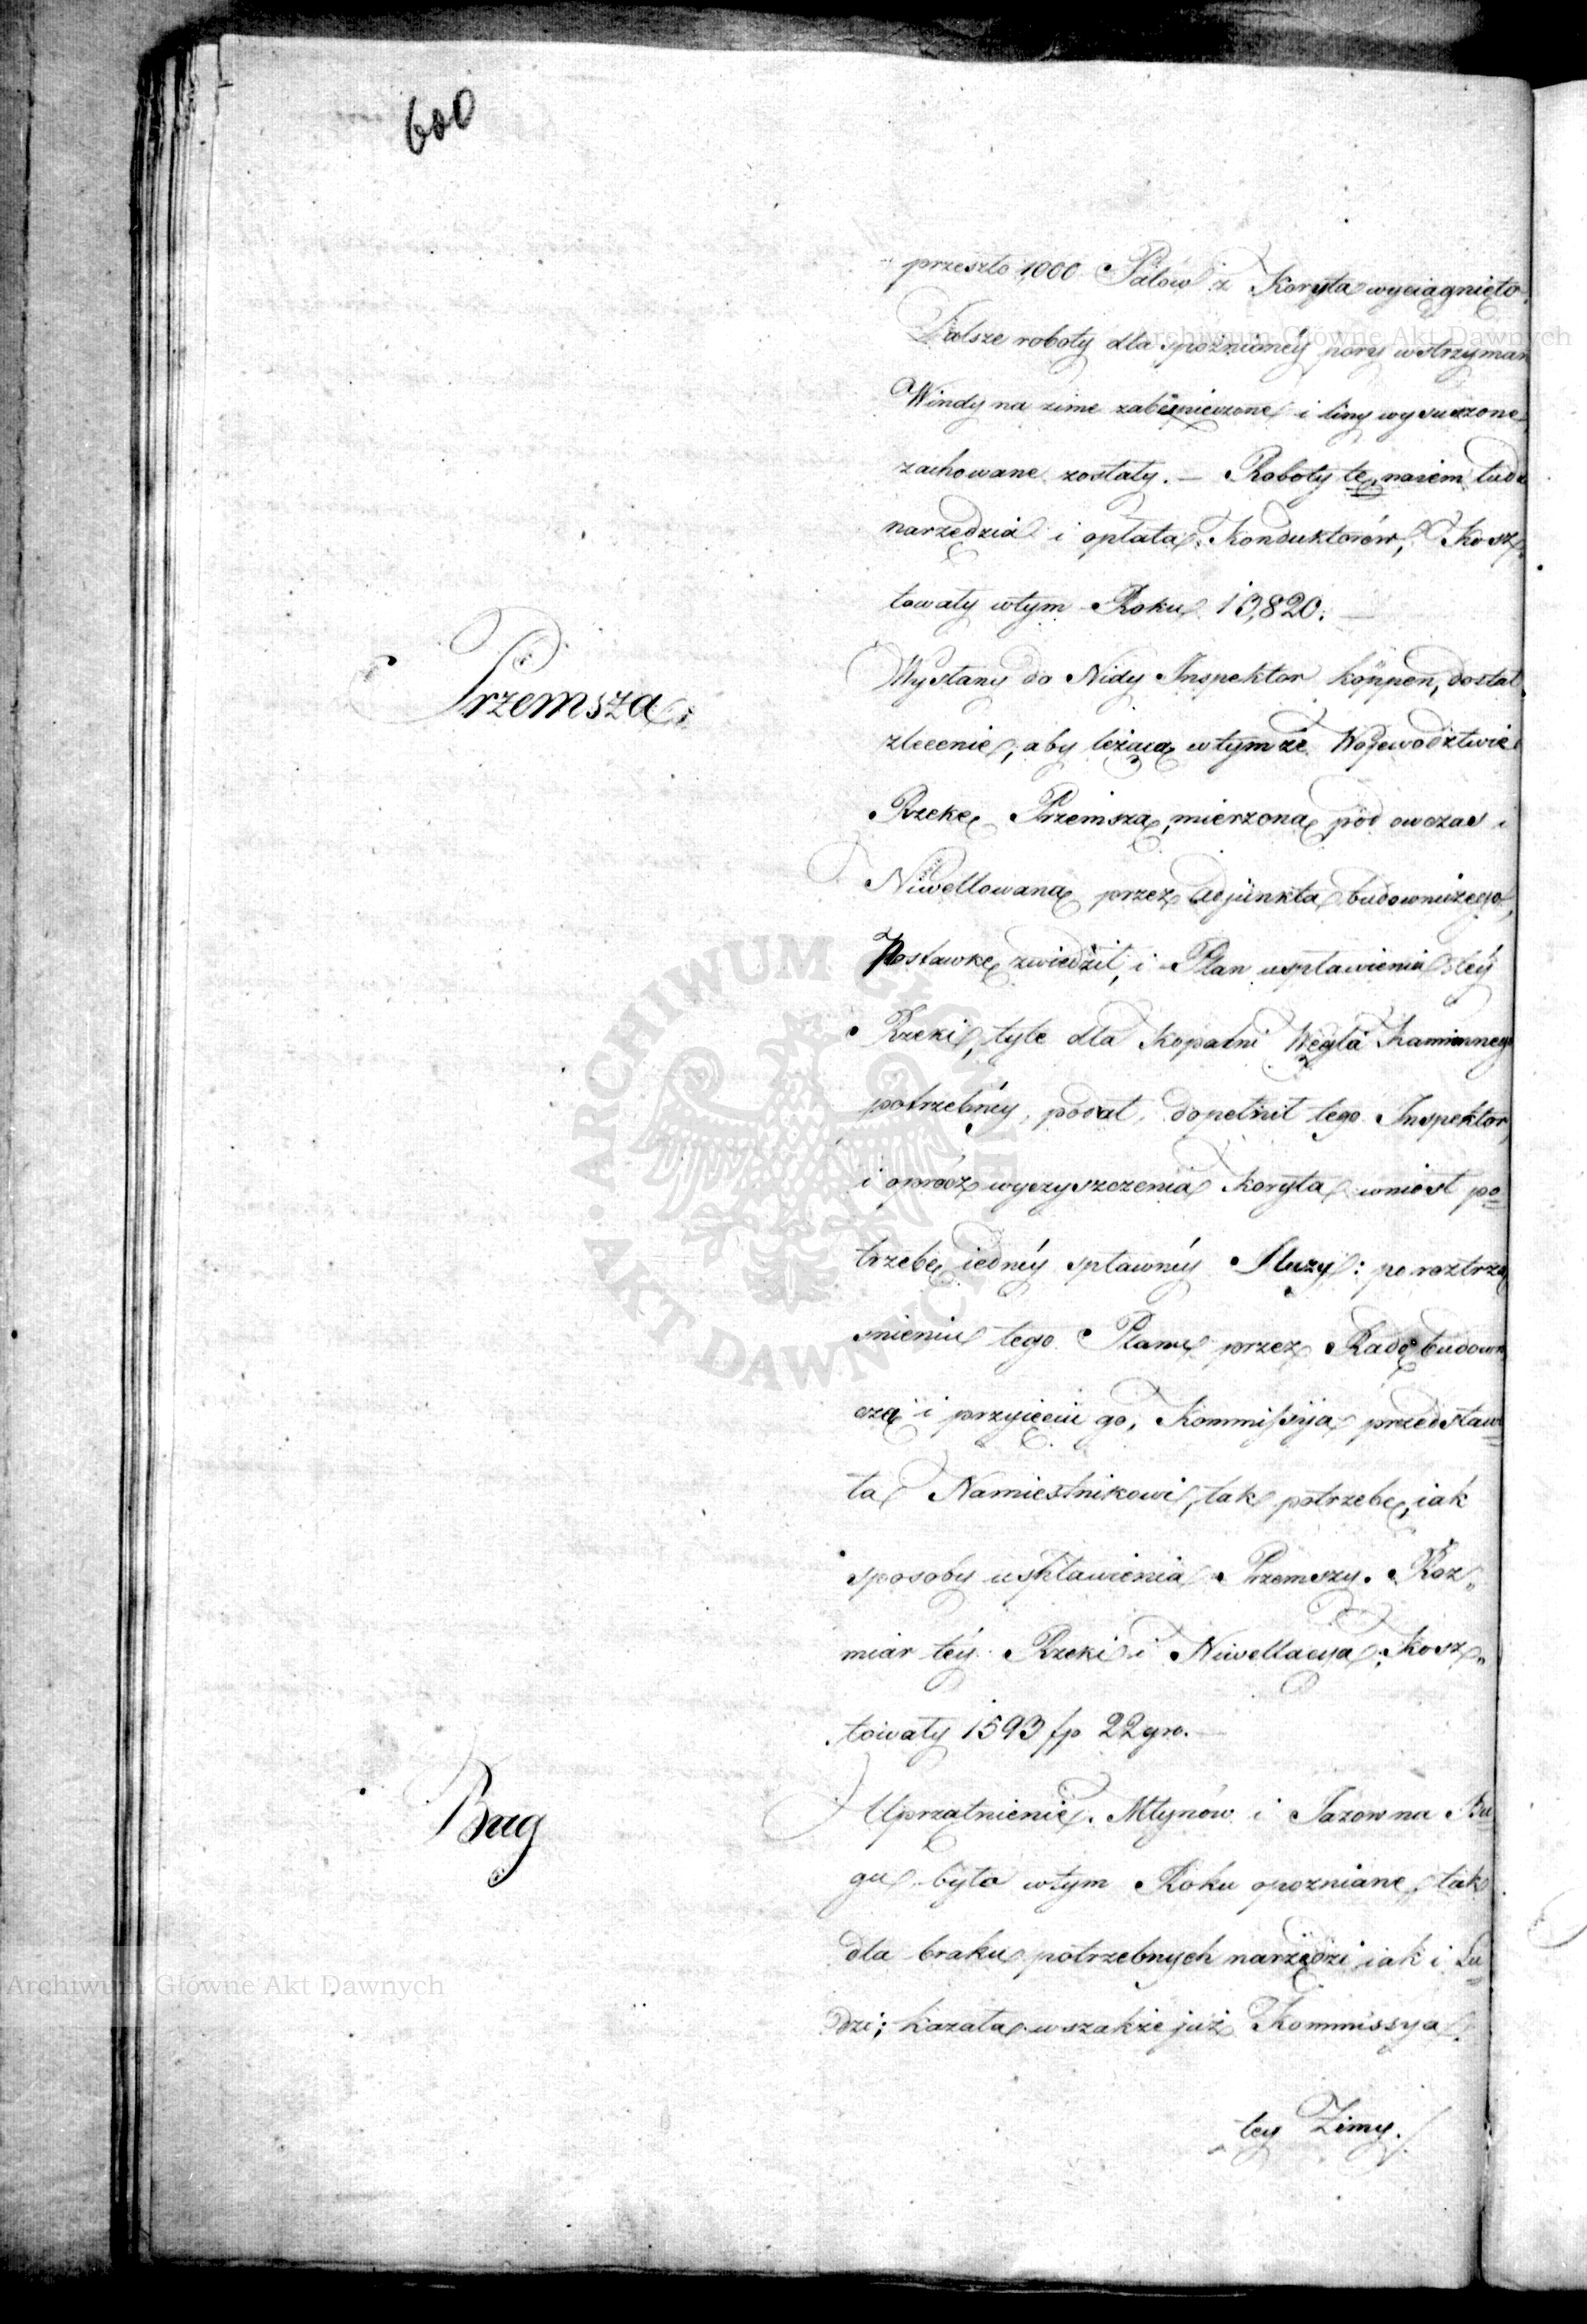 600
przeszło 1000 Palow z Koryta wyciągnięto.
Dalsze roboty dla spoźnionéy pory wstrzyman
Windy na zime zabespieczone i liny wysuszone
zachowane zostały. – Roboty te, najem ludz
narzędzia i opłata Konduktorów, Kosz„
towały wtym Roku 13,820.
Przemsza.
Wysłany do Nidy Inspektor Köppen, dostał
zlecenie, aby leżącą wtymże Wojewodztwie
Rzekę Przemszą, mierzoną pod owczas i
Niwellowaną przez Adjunkta budowniczego
Postawkę zwiedził, i Plan uspławienia téy
Rzeki, tyle dla Kopalni Węgla Kamiennego
potrzebnéy, podał, dopełnił tego Inspektor,
i oprócz wyczyszczenia Koryta wniosł po=
trzebę iednéy spławnéy Sluzy: po roztrzą
snieniu tego Planu przez Radę budown
czą i przyięciu go, Kommissyja przedstawi=
ła Namiestnikowi, tak potrzebę, iak
sposoby uspławienia Przemszy. Roz„
miar téy Rzeki i Niwellacya Kosz„
towały 1593 fp 22 gro.
Bug
Uprzatnienie Młynów i Jazow na Bu=
gu było wtym Roku opoznione, tak
dla braku potrzebnych narzędzi iak i Lu=
dzi; kazała wszakże już Kommissya
tey Zimy.
Archiwum Główne Akt Dawnych
Archiwum Główne Akt Dawnych
ARCHIWUM GŁÓWNE AKT DAWNYCH